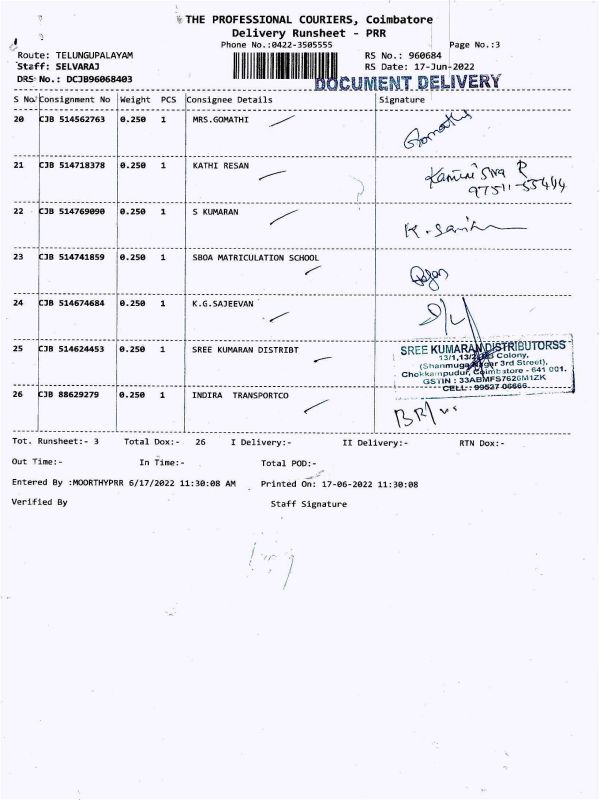 THE PROFESSIONAL COURIERS, Coimbatore
Delivery Runsheet - PRR
Phone No.:0422-3505555 Page No.:3
Route: TELUNGUPALAYAM RS No.: 960684
Staff: SELVARAJ RS Date: 17-Jun-2022
DRS No.: DCJB96068403 DOCUMENT DELIVERY
S No Consignment No Weight PCS Consignee Details Signature
20 CJB 514562763 0.250 1 MRS.GOMATHI Gomathi
21 CJB 514718378 0.250 1 KATHI RESAN
97511-55444
22 CJB 514769090 0.250 1 S KUMARAN
23 CJB 514741859 0.250 1 SBOA MATRICULATION SCHOOL
24 CJB 514674684 0.250 1 K.G.SAJEEVAN
25 CJB 514624453 0.250 1 SREE KUMARAN DISTRIBT
SREE KUMARAN DISTRIBUTORSS
Colony,
3rd Street),
Chokkampudur, Coimbatore - 641 001.
GSTIN : 33ABMFS7626M1ZK
CELL :
26 CJB 88629279 0.250 1 INDIRA TRANSPORTCO
Tot. Runsheet:- 3 Total Dox:- 26 I Delivery:- II Delivery:- RTN Dox:-
Out Time:- In Time:- Total POD:-
Entered By :MOORTHYPRR 6/17/2022 11:30:08 AM Printed On: 17-06-2022 11:30:08
Verified By Staff Signature